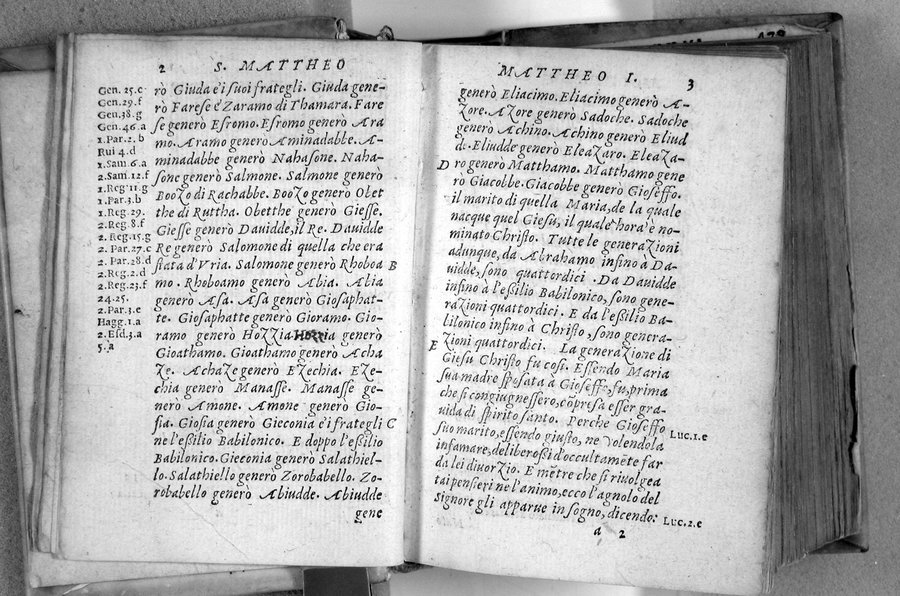 2 S. MATTHEO
Gen. 25.c
Gen. 29.f
Gen. 38.g
Gen. 46.a
1. Par. 2. b
Rui 4. d
1. Sam. 6. a
2. Sam. 12. f
1. Reg 11. g
1. Par. 3. b
1. Reg. 29.
2. Reg. 8. f
2. Reg. 15. g
2. Par. 27. c
2. Par. 28. d
2. Reg. 2. d
2. Reg. 23. f
24. 25.
2. Par. 3. e
Hagg. 1. a
2. Esd. 3. a
5. a
rò Giuda e i suoi frategli. Giuda gene-
rò Farese e Zaramo di Thamara. Fare
se generò Esromo. Esromo generò Ara
mo. Aramo generò Aminadabbe. A-
minadabbe generò Nahasone. Naha-
sone generò Salmone. Salmone generò
BooZo di Rachabbe. BooZo generò Obet
the di Ruttha. Obetthe generò Giesse.
Giesse generò Dauidde, il Re. Dauidde
Re generò Salomone di quella che era
stata d'Vria. Salomone generò Rhoboa B
mo. Rhoboamo generò Abia. Abia
generò Asa. Asa generò Giosaphat-
te. Giosaphatte generò Gioramo. Gio-
ramo generò HoZZia HoZZia generò
Gioathamo. Gioathamo generò Acha
Ze. AchaZe generò EZechia. EZe-
chia generò Manasse. Manasse ge-
nerò Amone. Amone generò Gio-
sia. Giosia generò Gieconia e i frategli C
ne l'essilio Babilonico. E doppo l'essilio
Babilonico. Gieconia generò Salathiel-
lo. Salathiello generò Zorobabello. Zo-
robabello generò Abiudde. Abiudde
gene
MATTHEO I. 3
generò Eliacimo. Eliacimo generò A-
Zore. AZore generò Sadoche. Sadoche
generò Achino. Achino generò Eliud
de. Eliudde generò EleaZaro. EleaZa-
D ro generò Matthamo. Matthamo gene
rò Giacobbe. Giacobbe generò Gioseffo.
il marito di quella Maria, de la quale
nacque quel Giesu, il quale hora è no-
minato Christo. Tutte le generaZioni
adunque, da Abrahamo infino a Da-
uidde, sono quattordici. Da Dauidde
infino a l'essilio Babilonico, sono gene-
raZioni quattordici. E da l'essilio Ba-
bilonico infino a Christo, sono genera-
E Zioni quattordici. La generaZione di
Giesu Christo fu cosi. Essendo Maria
sua madre sposata à Gioseffo, fu, prima
che si congiugnessero, cōpresa esser gra-
uida di spirito santo. Perche Gioseffo Luc. 1. e
suo marito, essendo giusto, ne volendola
infamare, deliberossi d'occultamēte far
da lei diuorZio. E mētre che si riuolgea
tai pensieri ne l'animo, ecco l'agnolo del
signore gli apparue in sogno, dicendo: Luc. 2. e
a 2